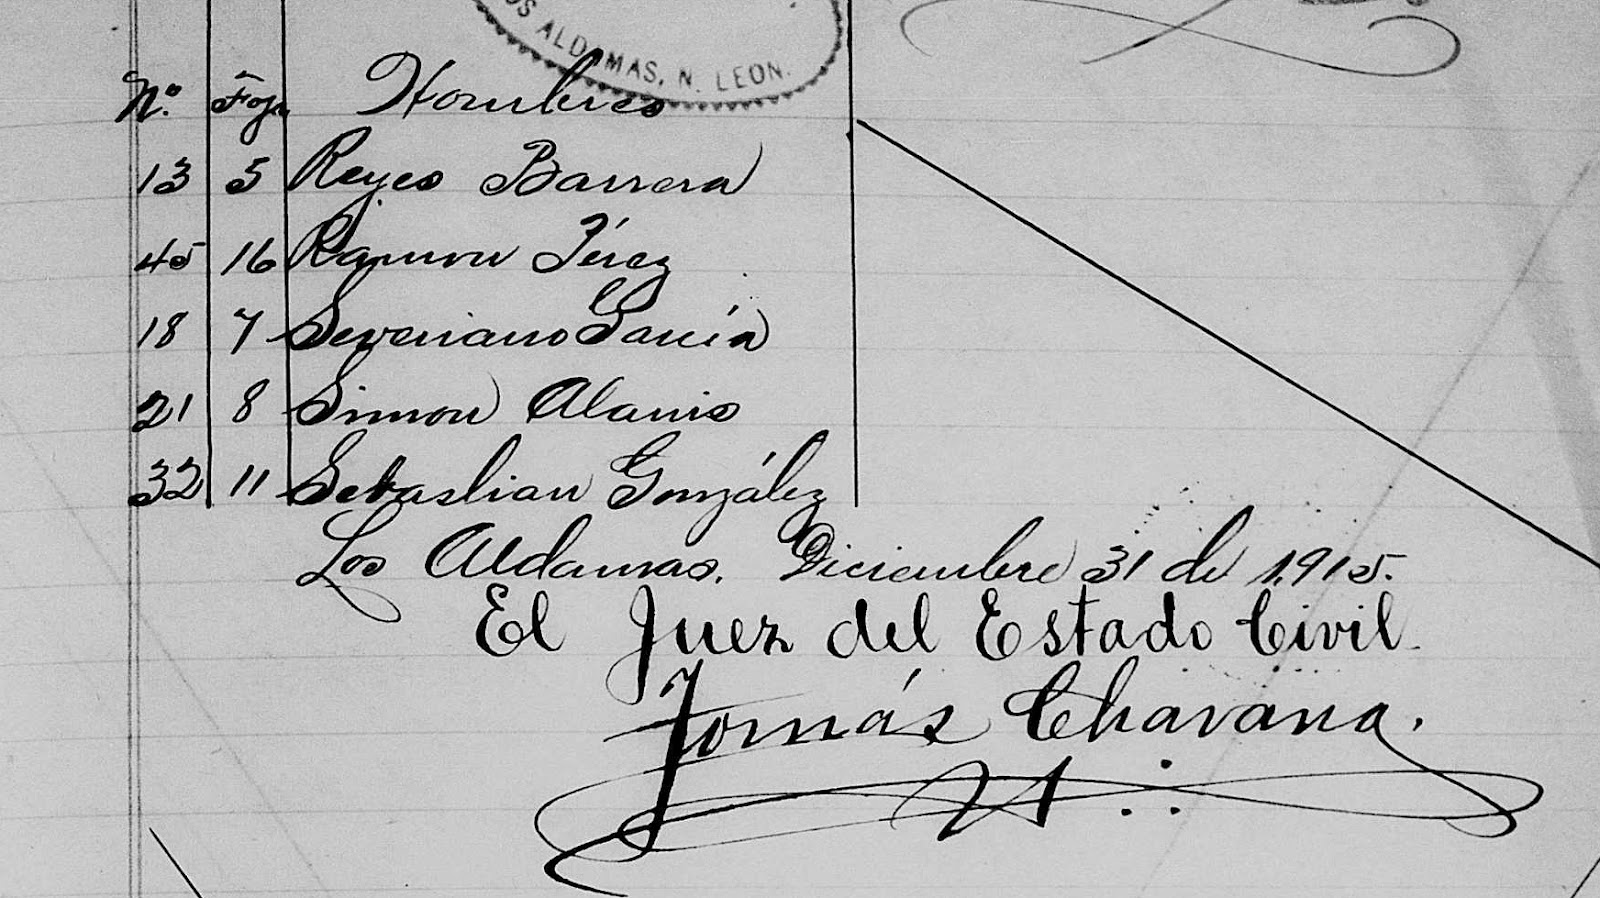 OS ALDAMAS, N. LEON.
No. Foja. Hombres
13 5 Reyes Barrera
45 16 Ramon Pérez
18 7 Severiano García
21 8 Simon Alanis
32 11 Sebastian González
Los Aldamas, Diciembre 31 de 1915.
El Juez del Estado Civil
Tomás Chavana.